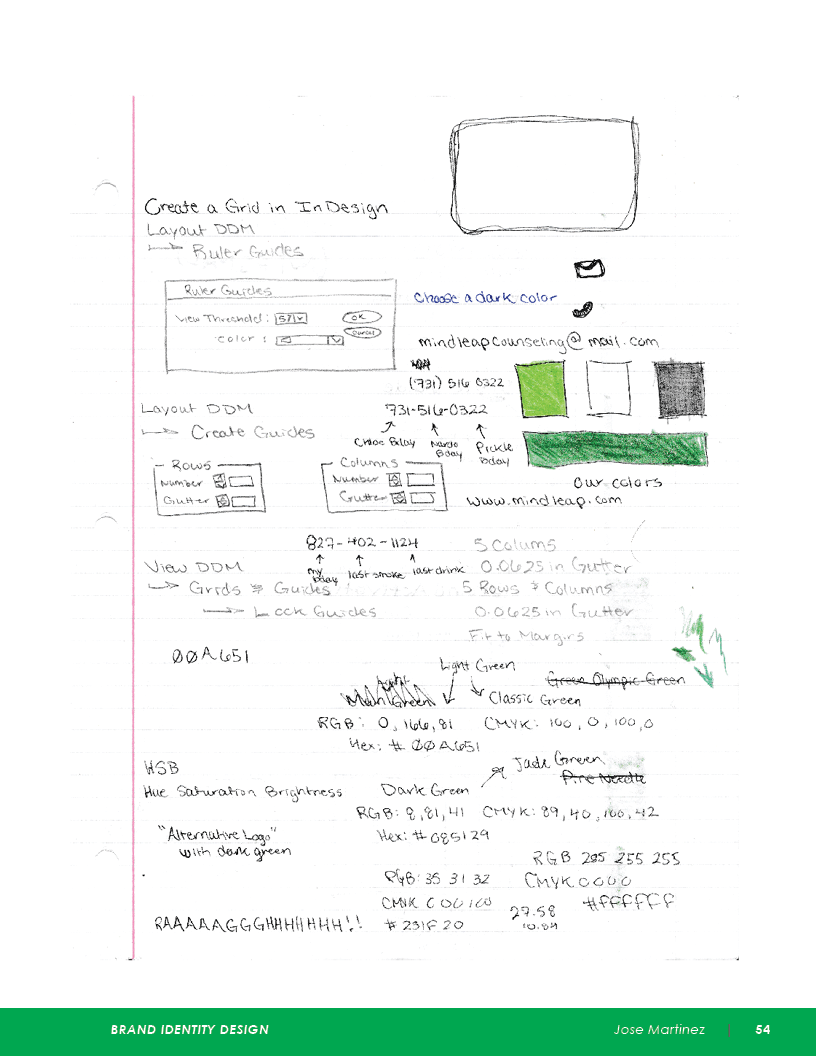 Create a Grid in InDesign
Layout DDM
Ruler Guides
Ruler Guides
View Threshold: 5%
OK
Color:
Cancel
Choose a dark color
mindleapcounseling@mail.com
(731) 516 0322
Layout DDM
731-516-0322
Create Guides
Chloe Bday
Nardo Bday
Pickle Bday
Rows
Number
Gutter
Columns
Number
Gutter
Our colors
www.mindleap.com
827-402-1124
my bday
last smoke
last drink
View DDM
Grids & Guides
Lock Guides
5 Colums
0.0625 in Gutter
5 Rows & Columns
0.0625 in Gutter
Fit to Margins
00A651
Light Green
Green Olympic Green
Classic Green
Green
RGB: 0, 166, 81
CMYK: 100, 0, 100, 0
Hex: #00A651
HSB
Hue Saturation Brightness
Jade Green
Pine Needle
Dark Green
RGB: 8, 81, 41
CMYK: 89, 40, 100, 42
Hex: #085129
"Alternative Logo"
with dark green
RGB 255 255 255
RGB: 35 31 32
CMYK 0 0 0 0
CMYK 0 0 0 100
#ffffff
27.58
10.84
#231F20
RAAAAAGGGHHHHHHH!!
BRAND IDENTITY DESIGN
Jose Martinez | 54